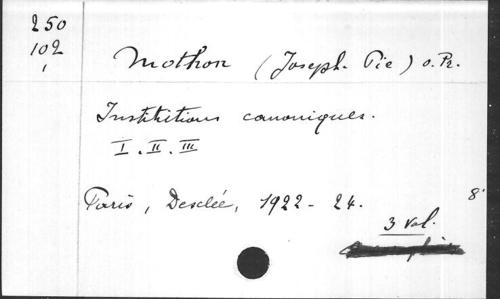 250
102
1
Mothon (Joseph. Pie) o. Pr.
Institutions canoniques.
I. II. III
Paris, Desclée, 1922-24.
8°
3 vol.